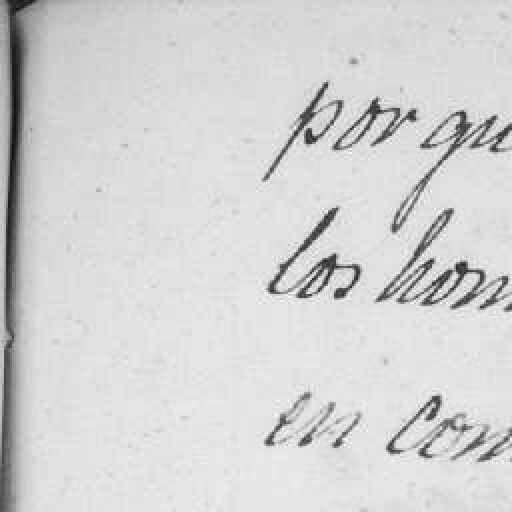 por qu
los hom
en com